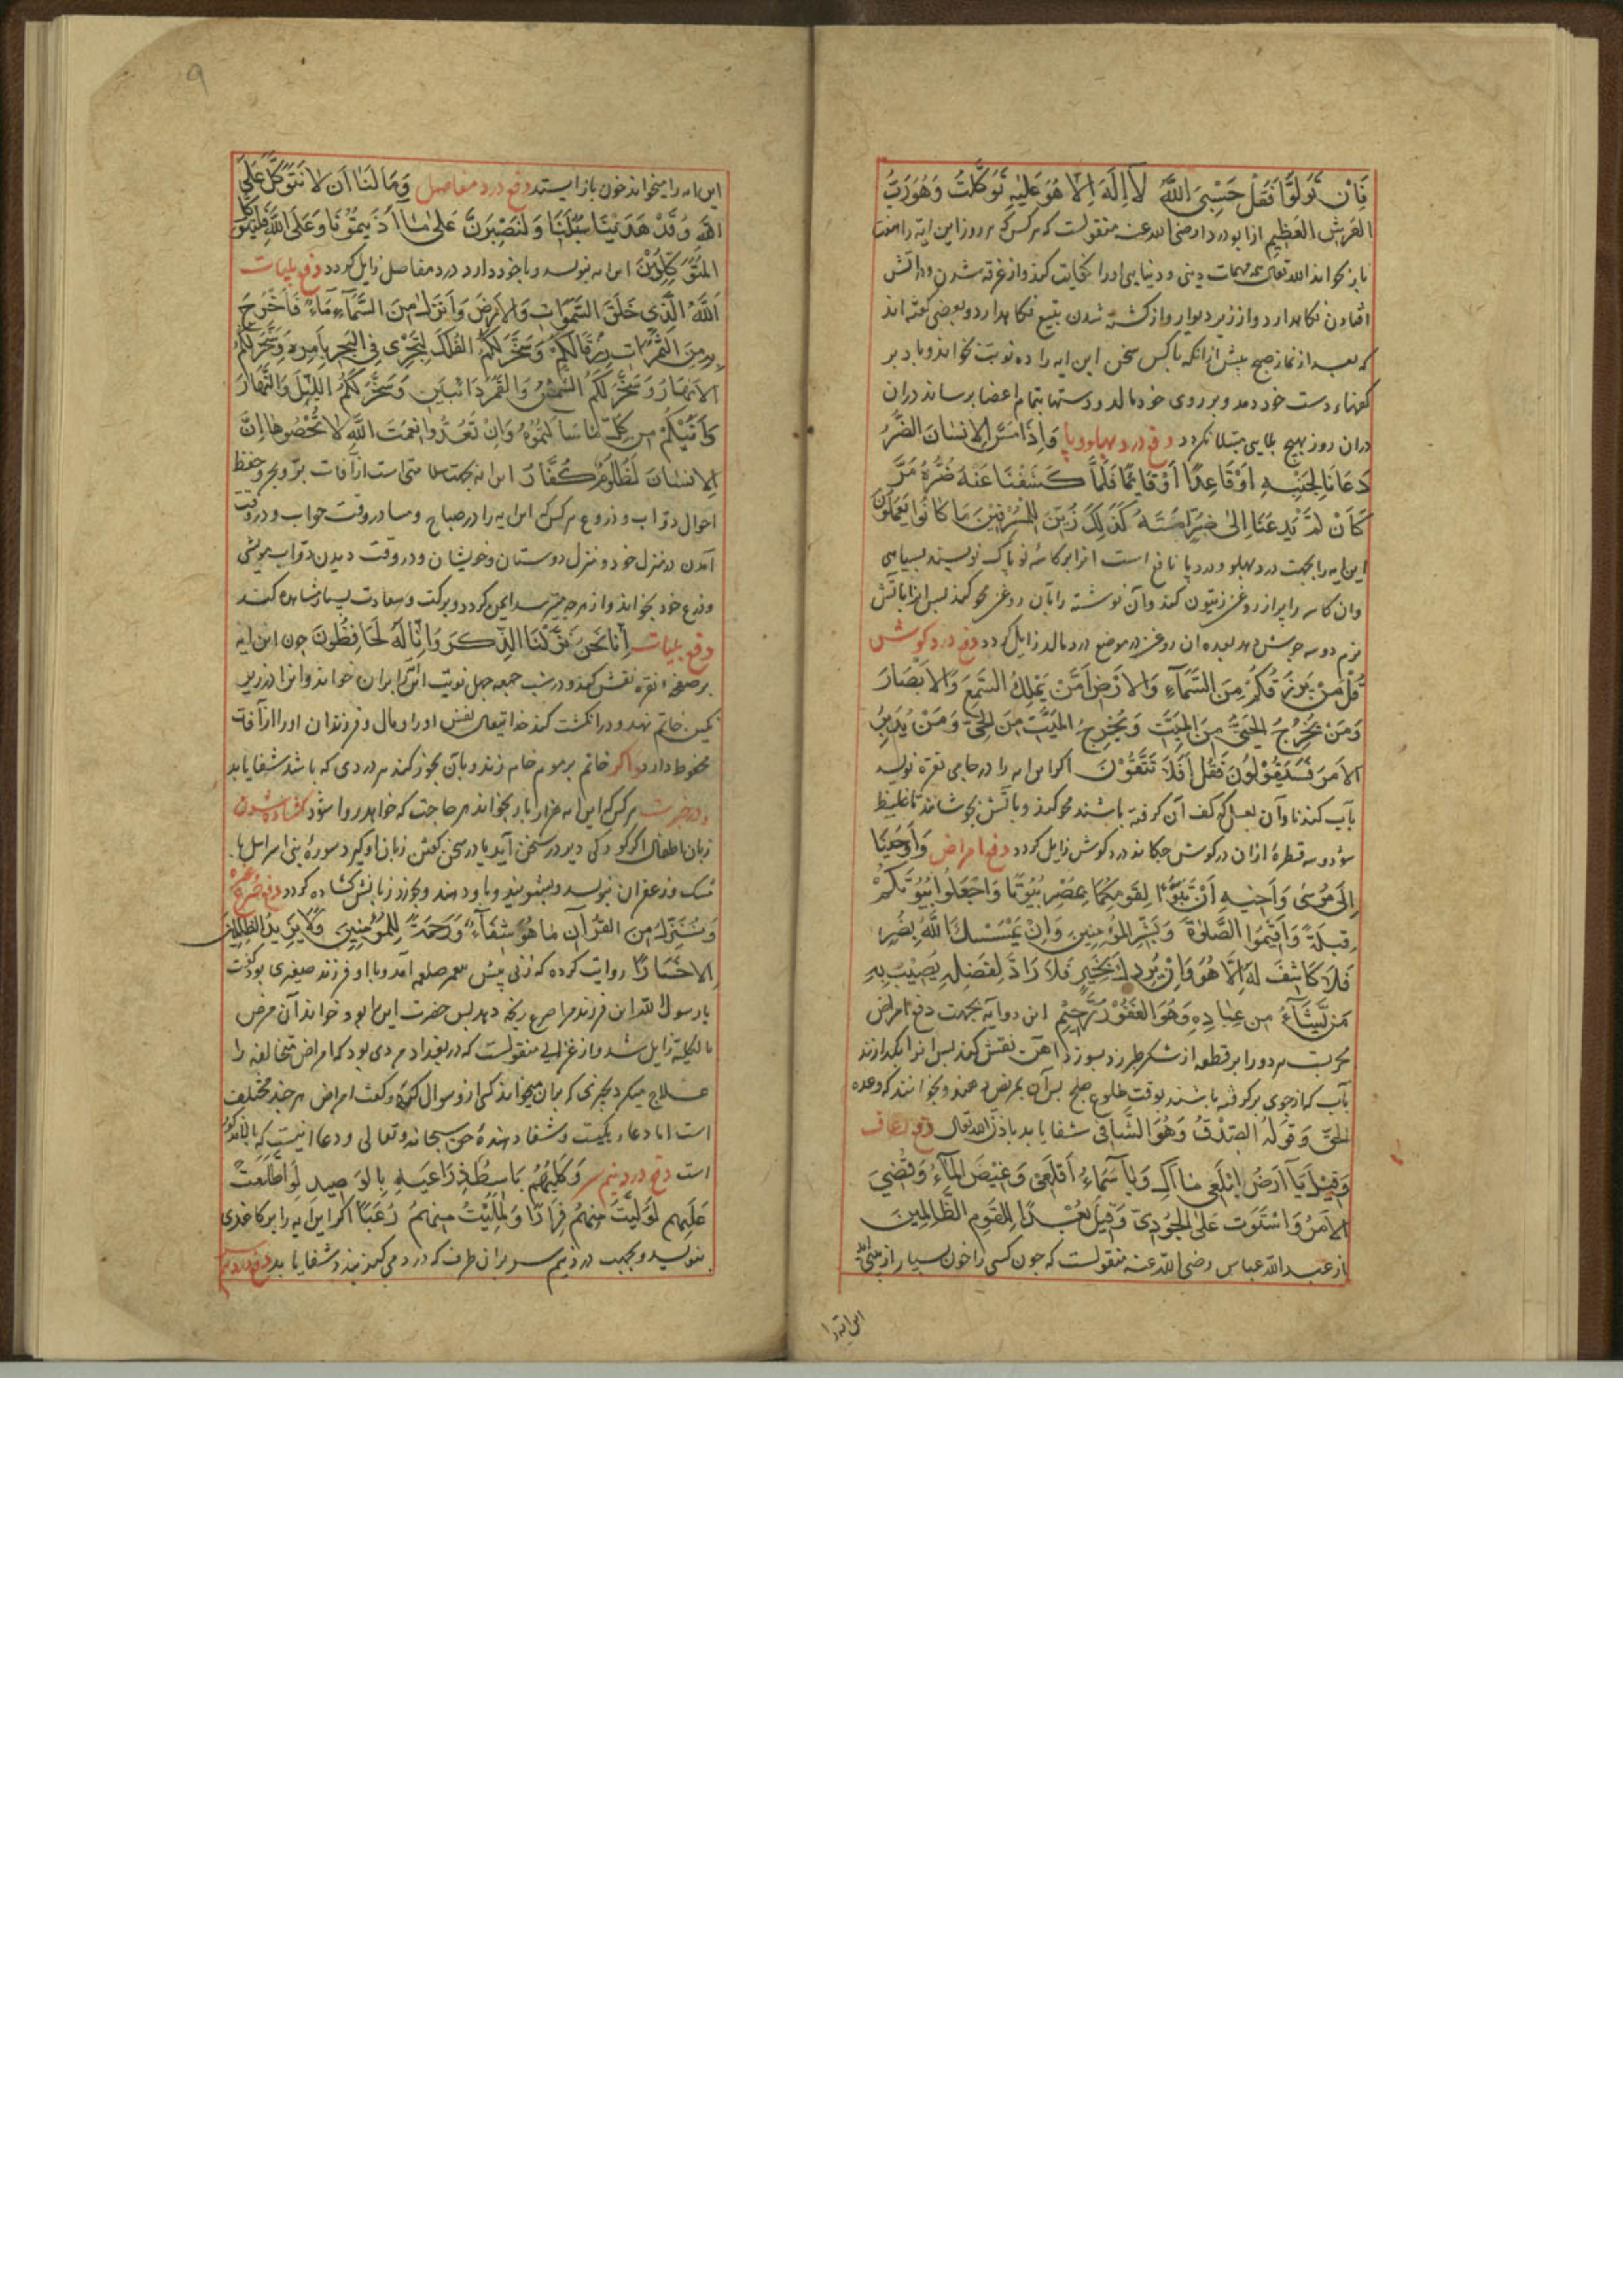 فَاِنْ تَوَلَّوْا فَقُلْ حَسْبِیَ اللّٰهُ لَا اِلٰهَ اِلَّا هُوَ عَلَیْهِ تَوَکَّلْتُ وَهُوَ رَبُّ
العَرْشِ العَظِیمِ از ابو دردا رضی الله عنه منقولست که هر کس که هر روز این آیه را هفت
بار بخواند الله تعالی همه مهمات دینی و دنیایی او را کفایت کند و از غرقه شدن و در آتش
افتادن نگاهدارد و از زیر دیوار و از کشته شدن بتیغ نگاهدارد و بعضی گفته اند
که بعد از نماز صبح پیش از آنکه با کس سخن این آیه را ده نوبت بخواند و باد بر
کفهاء دست خود دمد و بر روی خود مالد و دستها بتمام اعضا برساند در آن
دران روز بهیچ بلایی مبتلا نکردد دفع درد پهلو و پا وَاِذَا مَسَّ الاِنْسَانَ الضُّرُّ
دَعَانَا لِجَنْبِهِ اَوْ قَاعِدًا اَوْ قَائِمًا فَلَمَّا کَشَفْنَا عَنْهُ ضُرَّهُ مَرَّ
کَاَنْ لَمْ یَدْعُنَا اِلیٰ ضُرٍّ مَسَّهُ کَذٰلِكَ زُیِّنَ لِلْمُسْرِفِینَ مَا کَانُوا یَعْمَلُونَ
این آیه را بجهت درد پهلو و درد پا نافع است انرا بر کاسۀ نو پاک نویسند بسیاهی
وان کاسه را پر از روغن زیتون کند وآن نوشته را بآن روغن محو کند پس انرا بآتش
نرم دو سه جوش دهد بعده ان روغن در موضع درد مالد زایل کردد دفع درد کوش
قُلْ مَنْ یَرْزُقُکُمْ مِنَ السَّمَآءِ وَالاَرْضِ اَمَّنْ یَمْلِكُ السَّمْعَ وَالاَبْصَارَ
وَمَنْ یُخْرِجُ الحَیَّ مِنَ المَیِّتِ وَیُخْرِجُ المَیِّتَ مِنَ الحَیِّ وَمَنْ یُدَبِّرُ
الاَمْرَ فَسَیَقُوْلُونَ فَقُلْ اَفَلَا تَتَّقُوْنَ اکر این آیه را در جامی نقره نویسد
بآب کندنا وآن بعسل که کف آن کرفته باشند محو کند و بآتش بجوشاند تا غلیظ
شود و سه قطرۀ ازان در کوش چکاند درد کوش زایل کردد دفع امراض وَاَوْحَیْنَا
اِلیٰ مُوسیٰ وَاَخِیهِ اَنْ تَبَوَّءَا لِقَوْمِکُمَا بِمِصْرَ بُیُوتًا وَاجْعَلُوا بُیُوتَکُمْ
قِبْلَةً وَاَقِیمُوا الصَّلٰوةَ وَبَشِّرِ المُؤْمِنِینَ وَاِنْ یَمْسَسْكَ اللّٰهُ بِضُرٍّ
فَلَا کَاشِفَ لَهُ اِلَّا هُوَ وَاِنْ یُرِدْكَ بِخَیْرٍ فَلَا رَادَّ لِفَضْلِهِ یُصِیْبُ بِهِ
مَنْ یَّشَآءُ مِنْ عِبَادِهِ وَهُوَ الغَفُوْرُ الرَّحِیْمُ این دو آیه بجهت دفع امراض
مجربست هر دو را بر قطعه از شکر طبرزد بسوزن آهن نقش کند پس انرا بکدازند
بآب که از جوی بر کرفته باشند بوقت طلوع صبح پس آن بمریض دهند و بخوانند که وعده
الحَقُّ وَقَوْلُهُ الصِّدْقُ وَهُوَ الشَّافِی شفا یابد باذن الله تعالی دفع رعاف
وَقِیْلَ یَآ اَرْضُ ابْلَعِی مَآءَكِ وَیَا سَمَآءُ اَقْلِعِیْ وَغِیْضَ المَآءُ وَقُضِیَ
الاَمْرُ وَاسْتَوَتْ عَلیَ الجُوْدِیِّ وَقِیلَ بُعْدًا لِلْقَوْمِ الظَّالِمِینَ
از عبد الله عباس رضی الله عنه منقولست که چون کسی را خون بسیار از بینی آید
این آیه را
٩
این آیه را میخواند خون باز ایستد دفع درد مفاصل وَمَا لَنَا اَنْ لَا نَتَوَکَّلَ عَلَی
اللّٰهِ وَقَدْ هَدٰینَا سُبُلَنَا وَلَنَصْبِرَنَّ عَلیٰ مَا اٰذَیْتُمُوْنَا وَعَلَی اللّٰهِ فَلْیَتَوَکَّلِ
المُتَوَکِّلُوْنَ این آیه بنویسد و با خود دارد درد مفاصل زایل کردد دفع بلیات
اَللّٰهُ الَّذِی خَلَقَ السَّمٰوَاتِ وَالاَرْضَ وَاَنْزَلَ مِنَ السَّمَآءِ مَآءً فَاَخْرَجَ
بِهِ مِنَ الثَّمَرَاتِ رِزْقًا لَکُمْ وَسَخَّرَ لَکُمُ الفُلْكَ لِتَجْرِیَ فِی البَحْرِ بِاَمْرِهِ وَسَخَّرَ لَکُمُ
الاَنْهَارَ وَسَخَّرَ لَکُمُ الشَّمْسَ وَالقَمَرَ دَائِبَیْنِ وَسَخَّرَ لَکُمُ اللَّیْلَ وَالنَّهَارَ
وَاٰتٰیکُمْ مِنْ کُلِّ مَا سَاَلْتُمُوْهُ وَاِنْ تَعُدُّوا نِعْمَتَ اللّٰهِ لَا تُحْصُوهَا اِنَّ
الاِنْسَانَ لَظَلُومٌ کَفَّارٌ این آیه بجهت سلامتی است از آفات بر و بحر و حفظ
احوال دواب و زروع هر کس که این آیه را در صباح ومسا در وقت خواب و در وقت
آمدن در منزل خود و منزل دوستان وخویشان و در وقت دیدن دواب مویشی
وزرع خود بخواند و از هر چه میترسد ایمن کردد و برکت وسعادت بسیار مشاهده کند
دفع بلیات اِنَّا نَحْنُ نَزَّلْنَا الذِّکْرَ وَاِنَّا لَهُ لَحَافِظُونَ چون این آیه
بر صفحۀ نقره نقش کند و در شب جمعه چهل نوبت این آیه را بران خواند و انرا در زیر
نکین خاتم نهد و در انکشت کند خدایتعالی نفس او را و مال و فرزندان او را از آفات
محفوظ دارد و اکر خاتم بر موم خام زند و بآن بخور کند هر دردی که باشد شفا یابد
هر کس که این آیه هزار بار بخواند هر حاجت که خواهد روا شود کشاده شدن
زبان اطفال اکر کودکی دیر در سخن آید یا در سخن کفتن زبان او کیرد سورۀ بنی اسرایل با
مشک و زعفران بنویسد و بشویند و با و دهند و بخورد زبانش کشاده کردد دفع صرع
وَنُنَزِّلُ مِنَ القُرْآنِ مَا هُوَ شِفَآءٌ وَرَحْمَةٌ لِلْمُؤْمِنِینَ وَلَا یَزِیدُ الظَّالِمِینَ
اِلَّا خَسَارًا روایت کرده که زنی پیش پیغمبر صلعم آمد و با او فرزند صغیری بود کفت
یا رسول الله این فرزند مرا صرع رنجه دهد پس حضرت این آیه بر او خواند آن مرض
بالکلیه زایل شد و از غزالی منقولست که در بغداد مردی بود که امراض متخالفه را
علاج میکرد بچیزی که بران میخواند کسی ازو سوال کرد و کفت امراض هر چند مختلف
است اما دعاء یکیست و شفا دهندۀ حق سبحانه وتعالی و دعا اینست که بالا مذکور
است دفع درد نیم سر وَکَلْبُهُمْ بَاسِطٌ ذِرَاعَیْهِ بِالوَصِیدِ لَوِ اطَّلَعْتَ
عَلَیْهِمْ لَوَلَّیْتَ مِنْهُمْ فِرَارًا وَلَمُلِئْتَ مِنْهُمْ رُعْبًا اکر این آیه را بر کاغذی
بنویسد و بجهت درد نیم سر بران طرف که درد می کند بندد شفا یابد